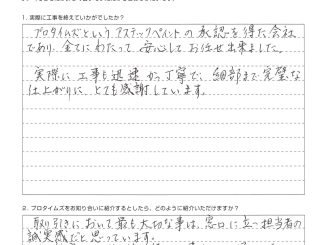 1. 実際に工事を終えていかがでしたか？
プロタイムズというアステックペイントの承認を得た会社
であり、全てにわたって安心してお任せ出来ました。
実際に工事も迅速かつ丁寧で、細部まで完璧な
仕上がりに、とても感謝しています。
2. プロタイムズをお知り合いに紹介するとしたら、どのように紹介いただけますか？
取り引きにおいて最も大切な事は、窓口に立つ担当者の
誠実感だと思っています。